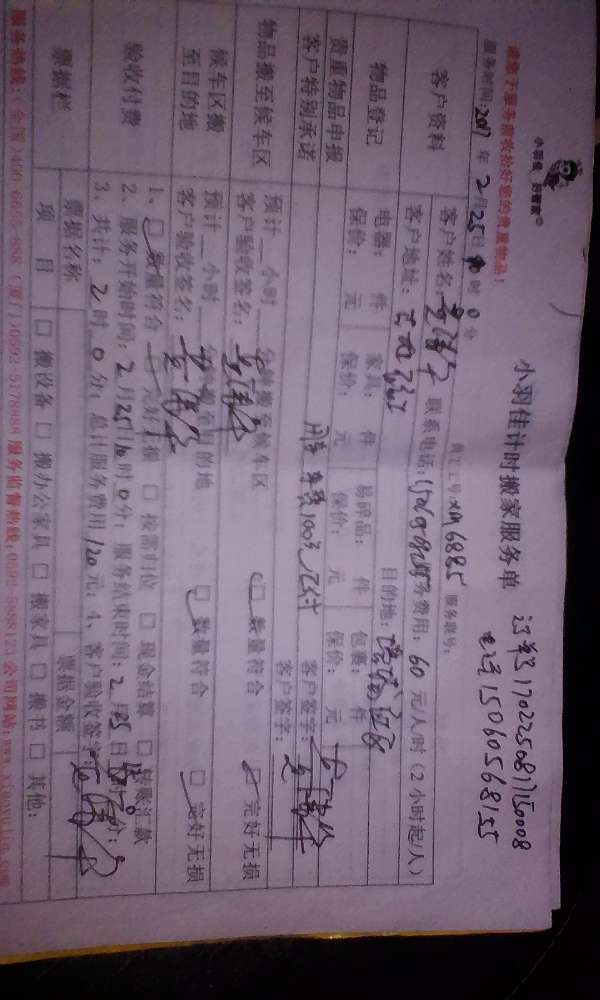 小羽佳 好管家
小羽佳计时搬家服务单
订单号17022508175150008
电话15060568155
请您于服务前收拾好您的贵重物品!
服务时间:2017年2月25日10时0分
员工工号:XM6885 服务账号:
客户资料
客户姓名: 联系电话: 服务费用:60元/人/时(2小时起/人)
客户地址: 目的地:
物品登记
电器: 件 家具: 件 易碎品: 件 包裹: 件
保价: 元 保价: 元 保价: 元 保价: 元
贵重物品申报
客户签字:
客户特别承诺
客户签字:
物品搬至候车区
预计__小时__分钟搬至候车区 □数量符合 □完好无损
客户验收签名:
候车区搬至目的地
预计__小时__分钟搬至目的地 □数量符合 □完好无损
客户验收签名:
验收付费
1、□数量符合 □完好无损 □按需归位 □现金结算 □转账汇款
2、服务开始时间:2月25日10时0分;服务结束时间:2月25日 时0分;
3、共计:2时0分;总计服务费用120元;4、客户验收签字:
票据栏
票据名称 票据金额
项目 □搬设备 □搬办公家具 □搬家具 □搬书 □其他:
服务热线:(全国)400-6655-888 (厦门)0592-5178888 服务监督热线:0592-5088123 公司网站:www.xiaoyujia.com